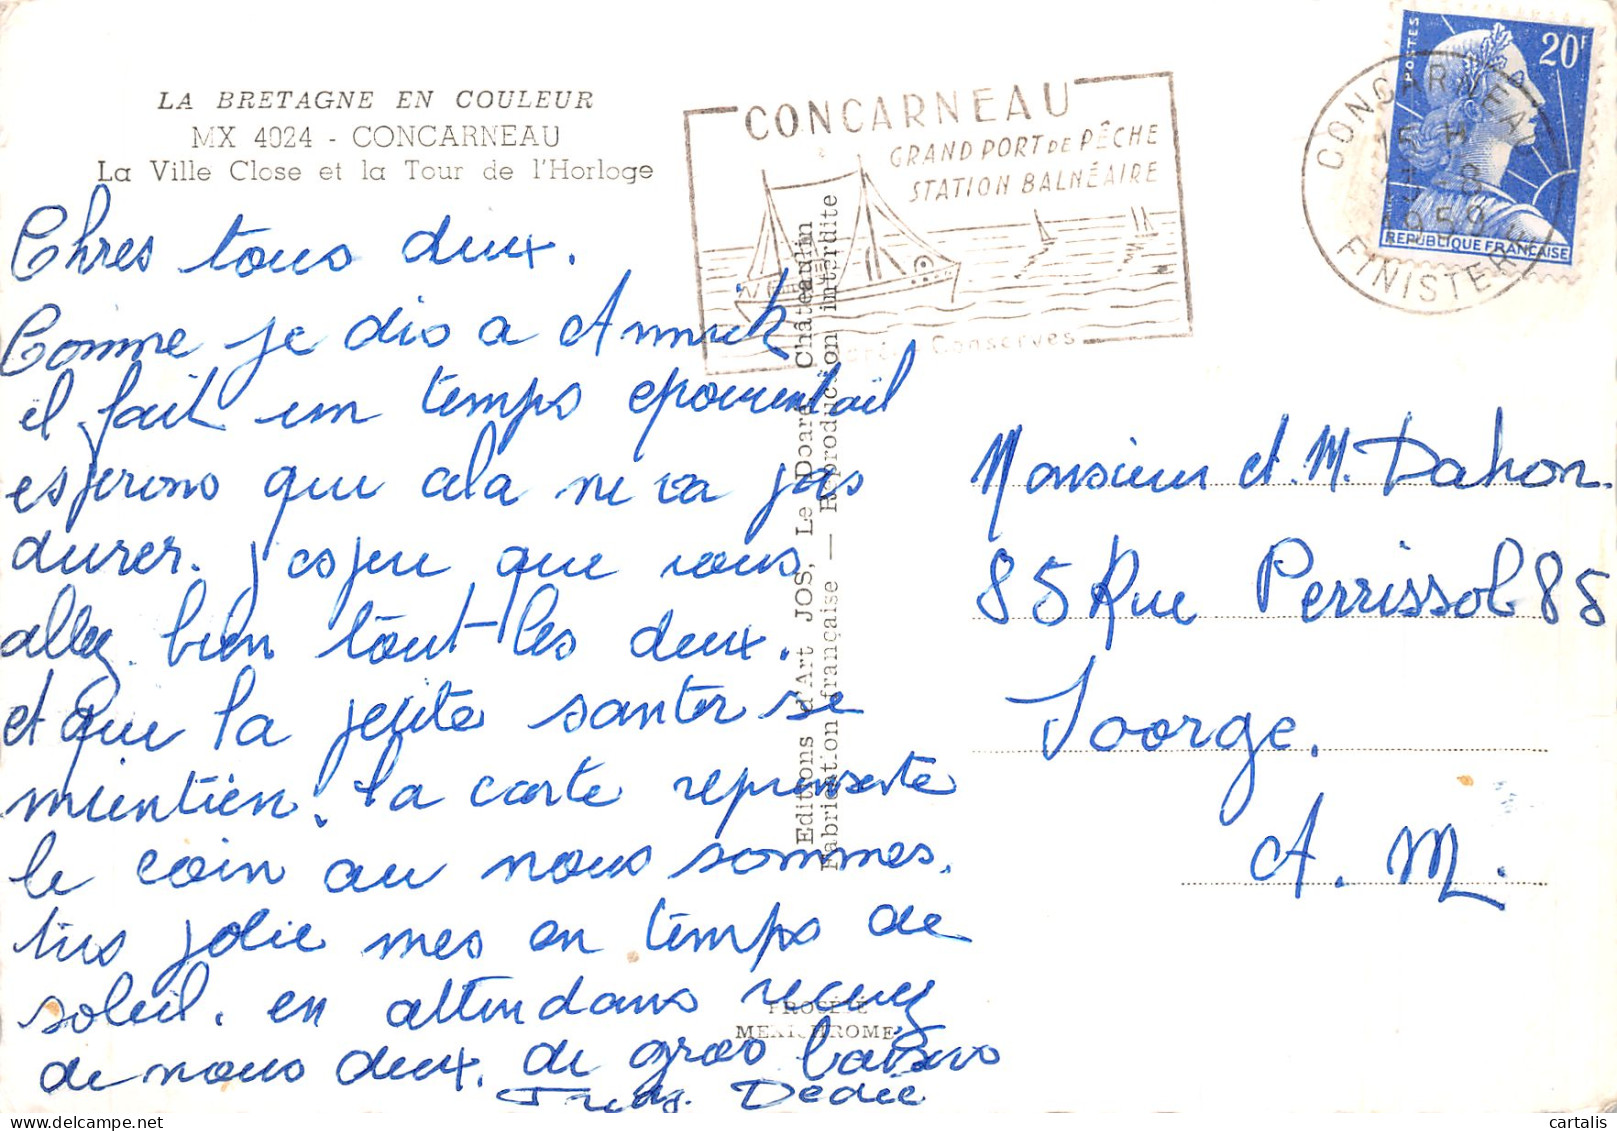 LA BRETAGNE EN COULEUR
MX 4024 - CONCARNEAU
La Ville Close et la Tour de l'Horloge
Chres tous deux.
Comme je dis a Annick
il fait un temps epouventail
esperons que cela ne va pas
durer. j'espere que vous
allez bien tout les deux.
et que la petite santer se
mientien. la carte represente
le coin au nous sommes.
tres jolie mes en temps de
soleil. en attendans recevez
de nous deux. de gros baisers
Dedée
Editions d'Art JOS, Le Doaré, Châteaulin
Fabrication française — Reproduction interdite
PROCÉDÉ
MEXICHROME
CONCARNEAU
GRAND PORT DE PÊCHE
STATION BALNÉAIRE
Conserves
POSTES
20F
REPUBLIQUE FRANÇAISE
CONCARNEAU
15 H
-8
1959
FINISTERE
Monsieur et M. Dahon.
85 Rue Perrissol 85
Soorge.
A. M.
cartalis
www.delcampe.net